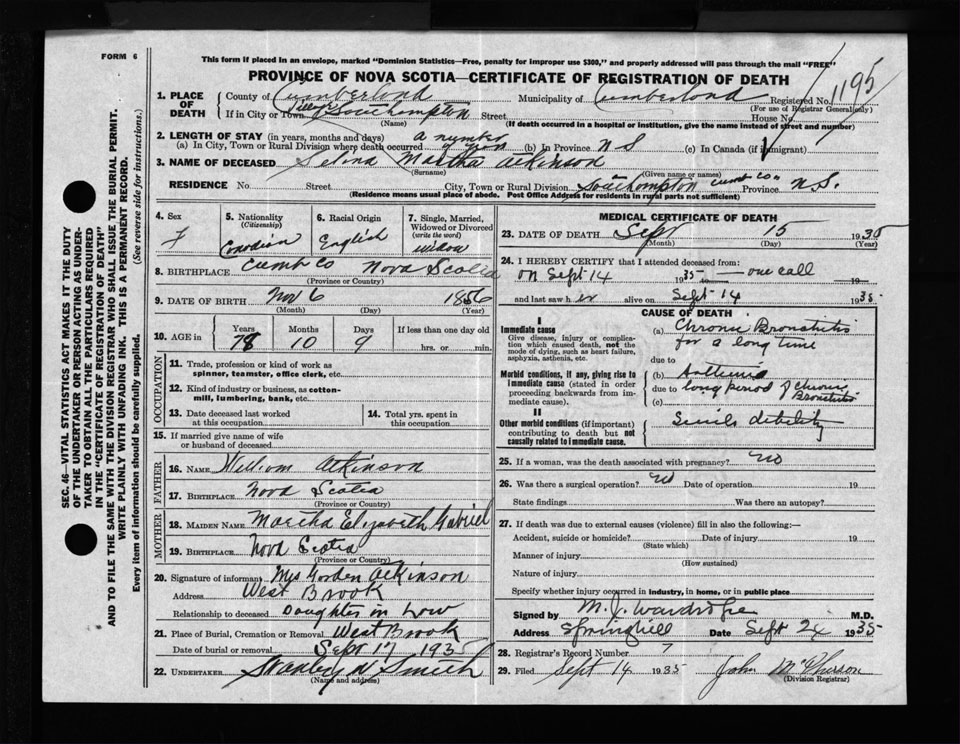 FORM 6
This form if placed in an envelope, marked "Dominion Statistics—Free, penalty for improper use $300," and properly addressed will pass through the mail "FREE"
PROVINCE OF NOVA SCOTIA—CERTIFICATE OF REGISTRATION OF DEATH
1195
1. PLACE OF DEATH
County of Cumberland Municipality of Cumberland Registered No.
(For use of Registrar General only)
If in City or Town Southampton Street House No.
(Name) (If death occurred in a hospital or institution, give the name instead of street and number)
2. LENGTH OF STAY (in years, months and days) a number
(a) In City, Town or Rural Division where death occurred of years (b) In Province N S (c) In Canada (if immigrant)
3. NAME OF DECEASED Selina Martha Atkinson
(Surname) (Given name or names)
RESIDENCE No. Street City, Town or Rural Division Southampton Cumb Co Province N.S.
(Residence means usual place of abode. Post Office Address for residents in rural parts not sufficient)
4. Sex
F
5. Nationality (Citizenship)
Canadian
6. Racial Origin
English
7. Single, Married, Widowed or Divorced (write the word)
widow
8. BIRTHPLACE Cumb Co Nova Scotia
(Province or Country)
9. DATE OF BIRTH Nov 6 1856
(Month) (Day) (Year)
10. AGE in
Years Months Days If less than one day old
78 10 9 hrs. or min.
OCCUPATION
11. Trade, profession or kind of work as spinner, teamster, office clerk, etc.
12. Kind of industry or business, as cotton-mill, lumbering, bank, etc.
13. Date deceased last worked at this occupation
14. Total yrs. spent in this occupation
15. If married give name of wife or husband of deceased
FATHER
16. NAME William Atkinson
17. BIRTHPLACE Nova Scotia
(Province or Country)
MOTHER
18. MAIDEN NAME Martha Elizabeth Gabriel
19. BIRTHPLACE Nova Scotia
(Province or Country)
20. Signature of informant Mrs Gorden Atkinson
Address West Brook
Relationship to deceased Daughter in Low
21. Place of Burial, Cremation or Removal West Brook
Date of burial or removal Sept 17 1935
22. UNDERTAKER Stanley N Smith
(Name and address)
MEDICAL CERTIFICATE OF DEATH
23. DATE OF DEATH Sept 15 1935
(Month) (Day) (Year)
24. I HEREBY CERTIFY that I attended deceased from:
on Sept 14 1935 — one call 19
and last saw her alive on Sept 14 1935
CAUSE OF DEATH
I
Immediate cause
Give disease, injury or complication which caused death, not the mode of dying, such as heart failure, asphyxia, asthenia, etc.
(a) Chronic Bronchitis
for a long time
due to
Morbid conditions, if any, giving rise to immediate cause (stated in order proceeding backwards from immediate cause).
(b) Asthenia
due to long period of chronic
(c) Bronchitis
II
Other morbid conditions (if important) contributing to death but not causally related to immediate cause.
Senile debility
25. If a woman, was the death associated with pregnancy? No
26. Was there a surgical operation? No Date of operation 19
State findings Was there an autopsy?
27. If death was due to external causes (violence) fill in also the following:—
Accident, suicide or homicide? Date of injury 19
(State which)
Manner of injury
(How sustained)
Nature of injury
Specify whether injury occurred in industry, in home, or in public place
Signed by M. J. Wardrope M.D.
Address Springhill Date Sept 24 1935
28. Registrar's Record Number 7
29. Filed Sept 14 1935 John McPherson
(Division Registrar)
SEC. 46—VITAL STATISTICS ACT MAKES IT THE DUTY
OF THE UNDERTAKER OR PERSON ACTING AS UNDER-
TAKER TO OBTAIN ALL THE PARTICULARS REQUIRED
IN THE "CERTIFICATE OF REGISTRATION OF DEATH"
AND TO FILE THE SAME WITH THE DIVISION REGISTRAR WHO SHALL ISSUE THE BURIAL PERMIT.
WRITE PLAINLY WITH UNFADING INK. THIS IS A PERMANENT RECORD.
Every item of information should be carefully supplied. (See reverse side for instructions.)